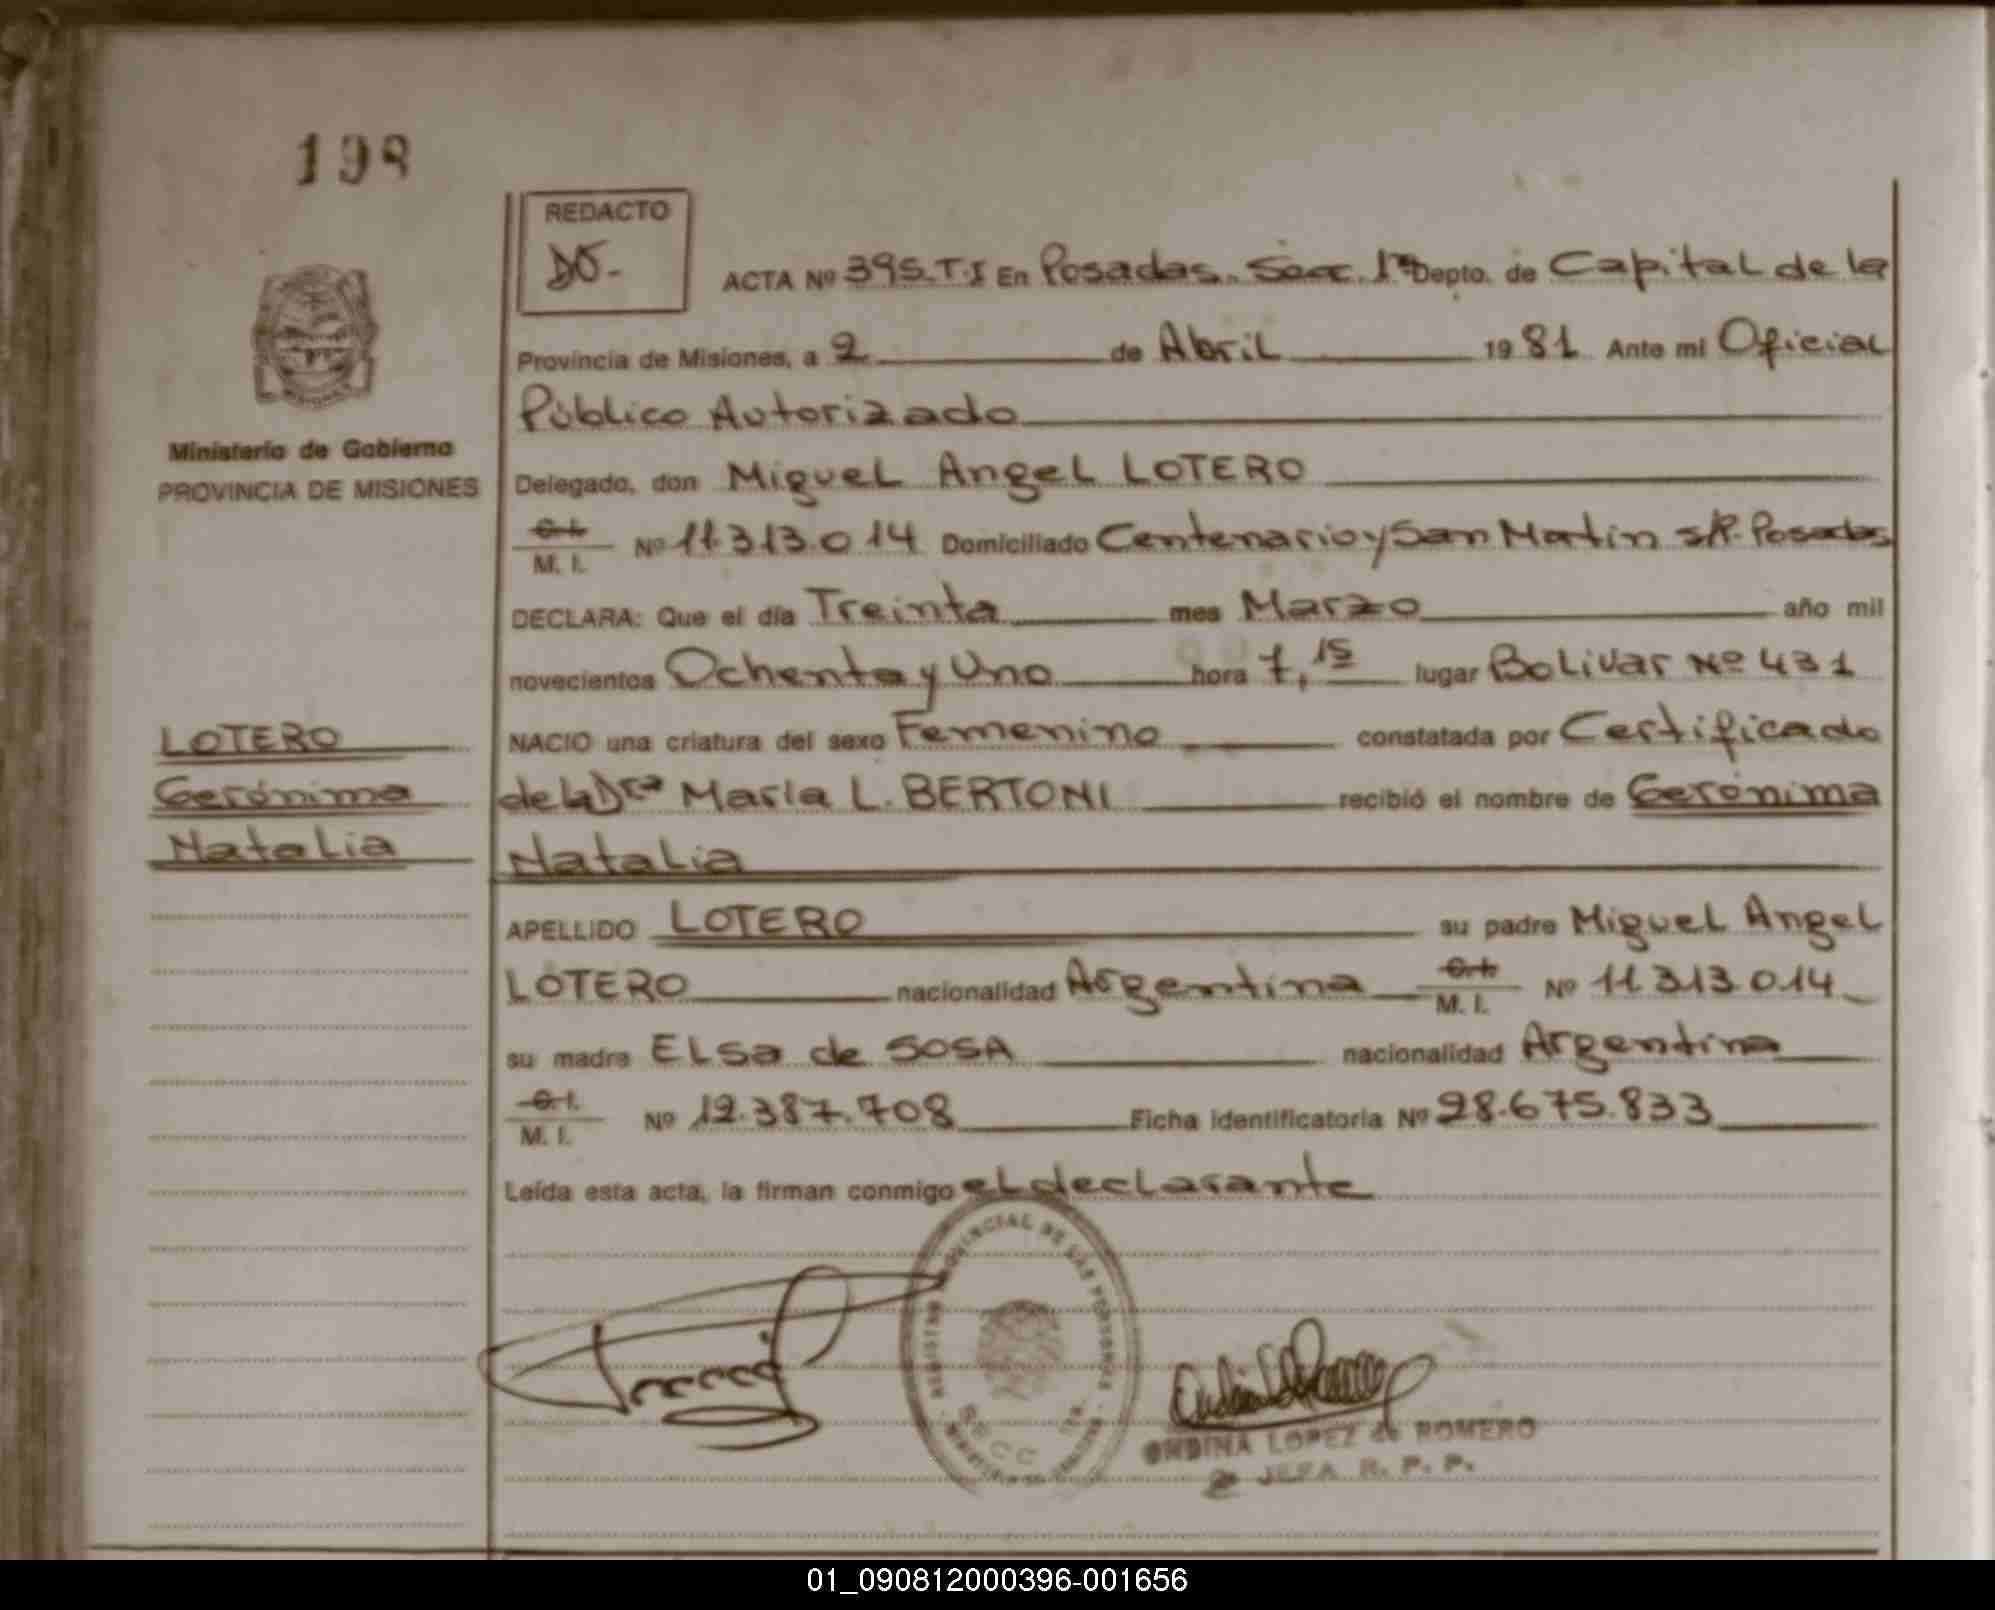 198
REDACTO
DO.-
ACTA Nº 395.T.I En Posadas. Secc. 1ª Depto. de Capital de la
Provincia de Misiones, a 2 de Abril 1981 Ante mi Oficial
Público Autorizado
Ministerio de Gobierno
PROVINCIA DE MISIONES
Delegado, don Miguel Angel LOTERO
C.I. M. I. Nº 11.313.014 Domiciliado Centenario y San Martin s/Nº. Posadas
DECLARA: Que el día Treinta mes Marzo año mil
novecientos Ochenta y Uno hora 7,15 lugar Bolivar Nº 431
LOTERO
Gerónima
Natalia
NACIO una criatura del sexo Femenino constatada por Certificado
de la Dra María L. BERTONI recibió el nombre de Gerónima
Natalia
APELLIDO LOTERO su padre Miguel Angel
LOTERO nacionalidad Argentina C.I. M. I. Nº 11.313.014
su madre ELSa de SOSA nacionalidad Argentina
C.I. M. I. Nº 12.387.708 Ficha identificatoria Nº 28.675.833
Leída esta acta, la firman conmigo el declarante
REGISTRO PROVINCIAL DE LAS PERSONAS
SECC 1RA
ONDINA LOPEZ de ROMERO
JEFA R. P. P.
01_090812000396-001656